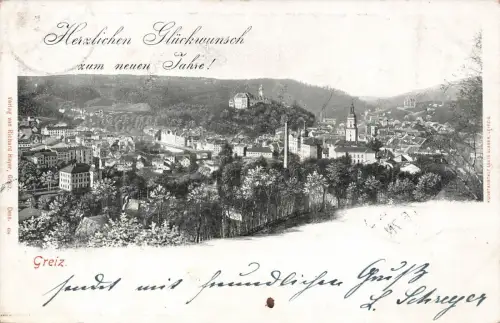 Herzlichen Glückwunsch
zum neuen Jahre!
Verlag von Richard
Greiz.
sendet mit freundlichen Gruß
L. Schreyer